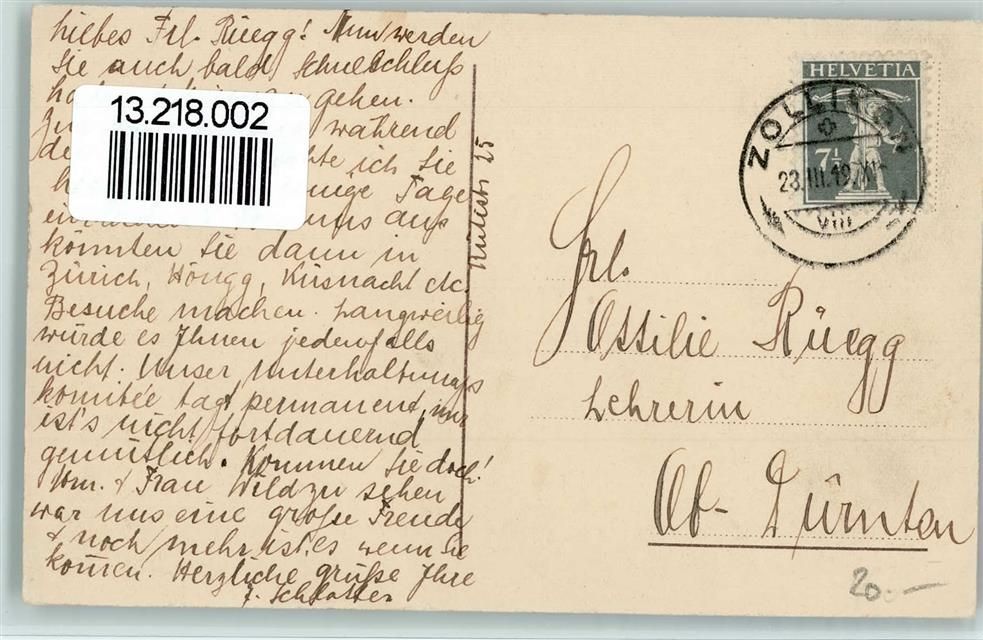 Liebes Frl. Rüegg! Nun werden
Sie auch bald Schulschluß
gehen.
während
ich Sie
Tage
uns aus
könnten Sie dann in
Zürich, Höngg, Küsnacht etc.
Besuche machen. Langweilig
würde es Ihnen jedenfalls
nicht. Unser Unterhaltungs
komitée tagt permanent, nur
ist's nicht fortdauernd
gemütlich. Kommen Sie doch!
& Frau Wild zu sehen
war uns eine große Freude
& noch mehr ist es wenn Sie
kom̄en. Herzliche grüße Ihre
J. Schlatter
25
13.218.002
HELVETIA
7½
ZOLLIKON
23.III.19
VIII
Frl.
Ottilie Rüegg
Lehrerin
Ob-Dürnten
20.-